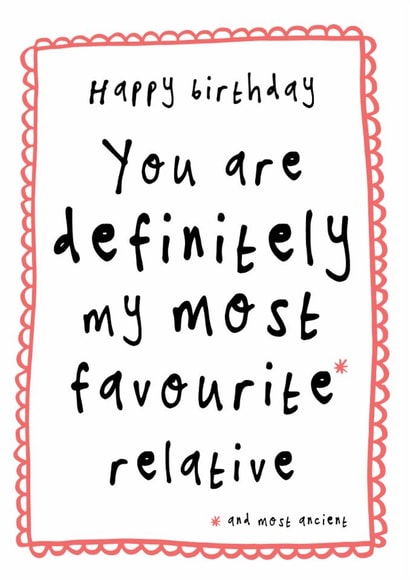 Happy birthday
You are
definitely
my most
favourite*
relative
* and most ancient